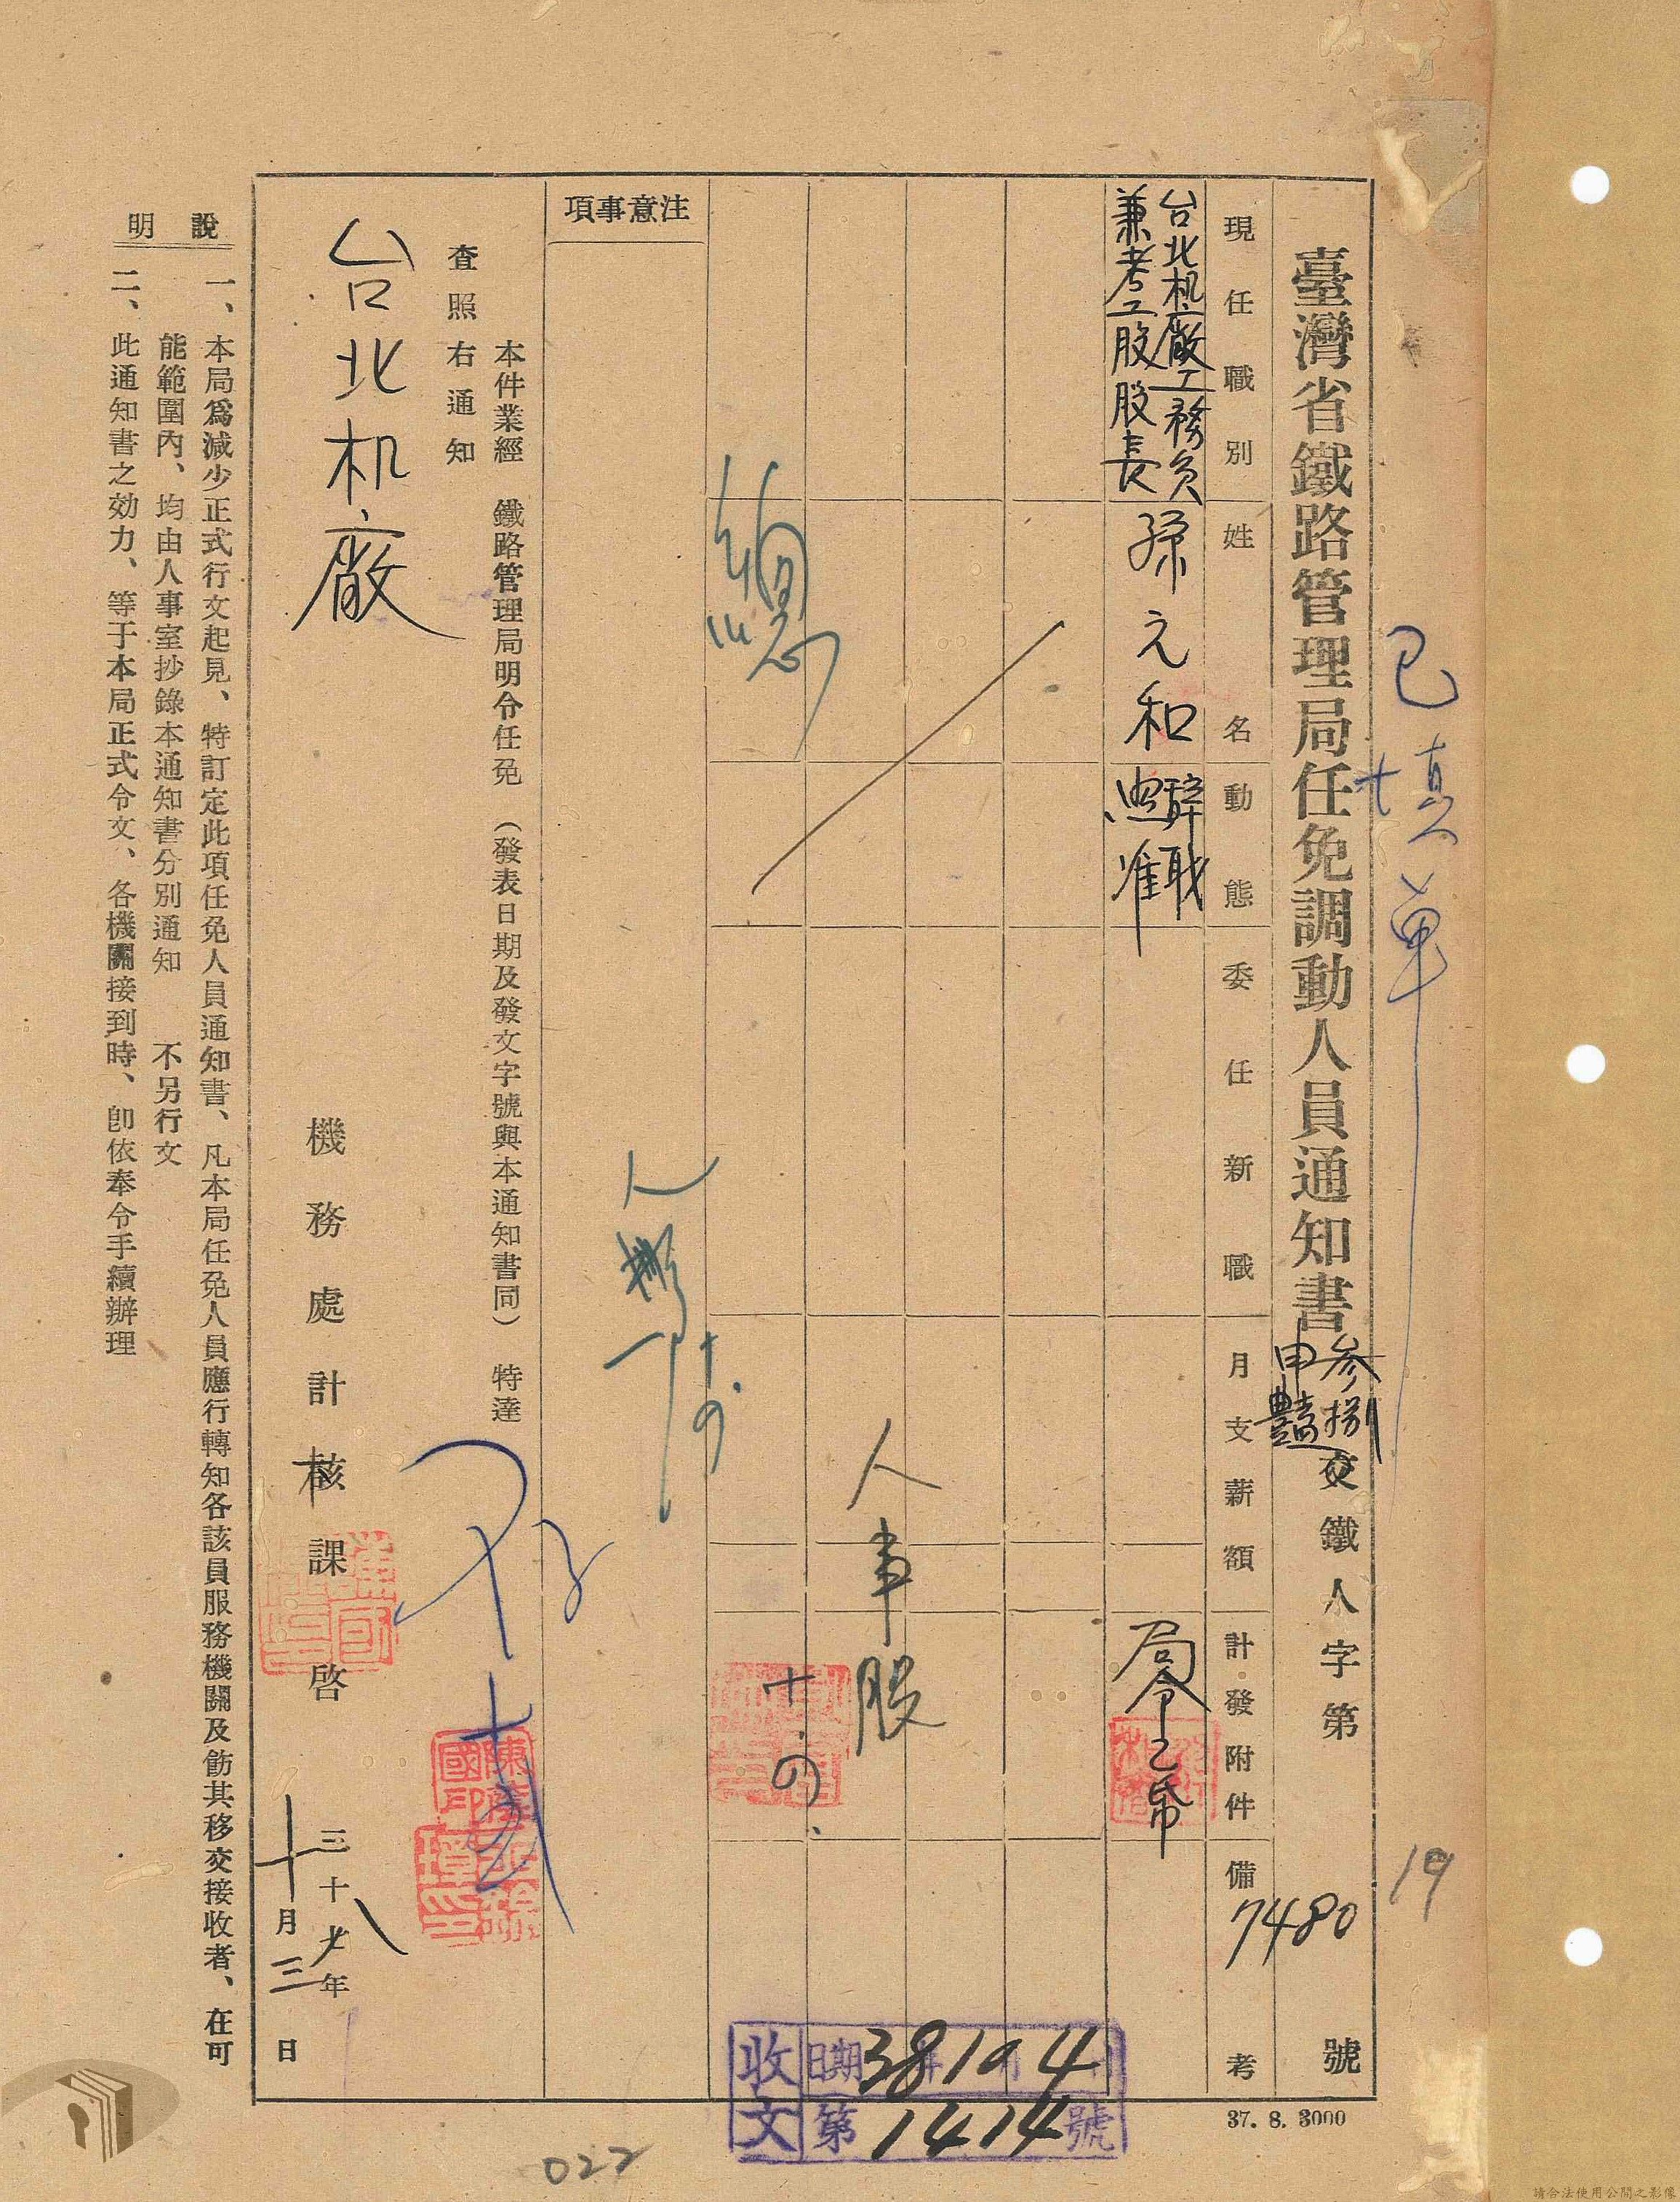 臺灣省鐵路管理局任免調動人員通知書
參捌申豔交鐵人字第7480號
已填單
19
現任職別
姓名
動態
委任新職
月支薪額
計發附件
備考
台北机廠工務員
兼考工股股長
孫元和
辭職
照准
局令乙帋
人事股
十.四.
注意事項
本件業經 鐵路管理局明令任免 (發表日期及發文字號與本通知書同) 特達
查照右通知
台北机廠
機務處計核課啓
三十八年十月三日
說明
一、本局爲減少正式行文起見、特訂定此項任免人員通知書、凡本局任免人員應行轉知各該員服務機關及飭其移交接收者、在可
能範圍內、均由人事室抄錄本通知書分別通知 不另行文
二、此通知書之効力、等于本局正式令文、各機關接到時、卽依奉令手續辦理
收文
日期 38 10 4
第1414號
37. 8. 3000
022
請合法使用公開之影像